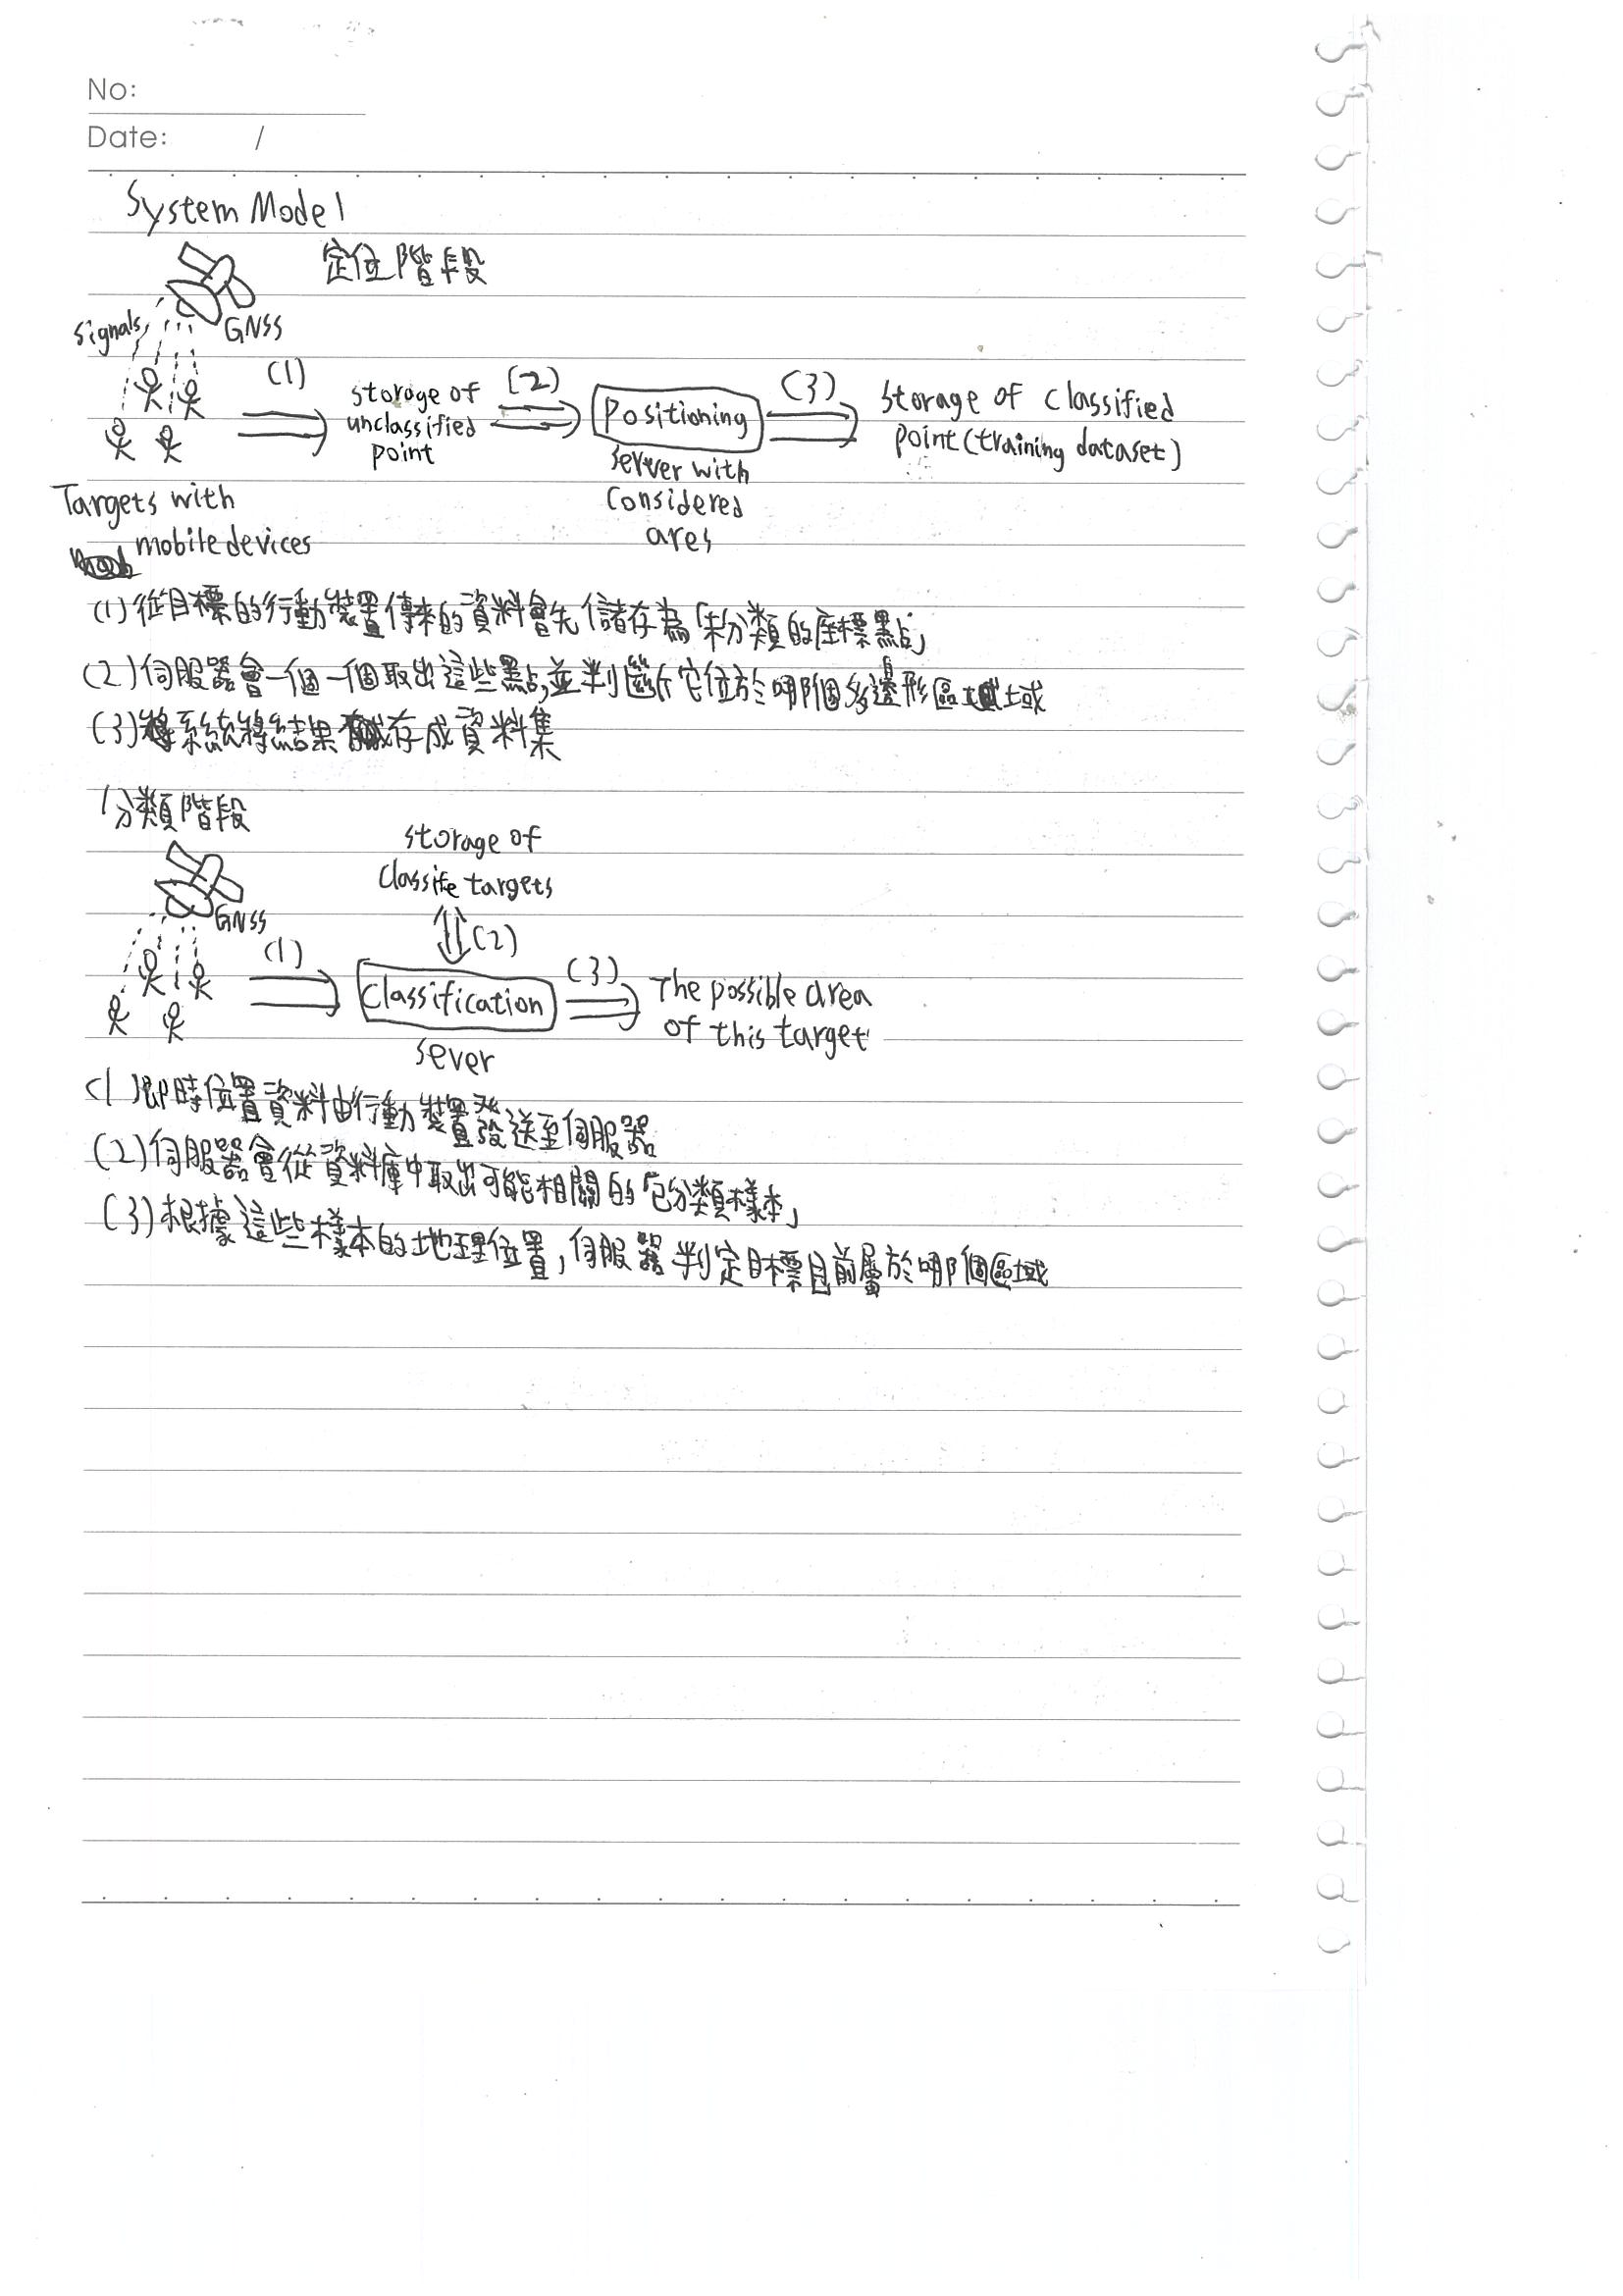 No:
Date: /
System Model
定位階段
signals
GNSS
(1)
storage of
unclassified
point
(2)
Positioning
server with
Considered
ares
(3)
Storage of classified
point(training dataset)
Targets with
mobile devices
(1)從目標的行動裝置傳來的資料會先儲存為「未分類的座標點」
(2)伺服器會一個一個取出這些點,並判斷它位於哪個多邊形區域
(3)系統將結果存成資料集
分類階段
GNSS
storage of
Classife targets
(2)
(1)
Classification
Sever
(3)
The possible area
of this target
(1)即時位置資料由行動裝置發送至伺服器
(2)伺服器會從資料庫中取出可能相關的「已分類樣本」
(3)根據這些樣本的地理位置,伺服器判定目標目前屬於哪個區域